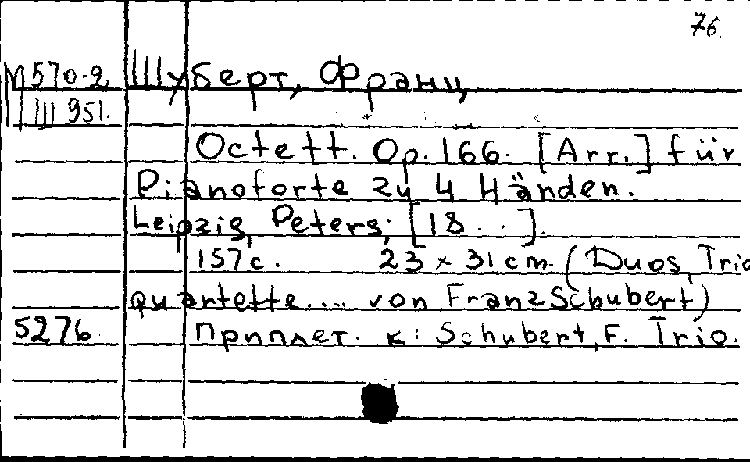 76.
М570-2 Шуберт, Франц
III 951.
Octett. Op. 166. [Arr.] für
Pianoforte zu 4 Händen.
Leipzig, Peters, [18 . . ].
157 c. 23 × 31 cm. (Duos, Trio
quartette.... von Franz Schubert)
5276 Приплет. к: Schubert, F. Trio.